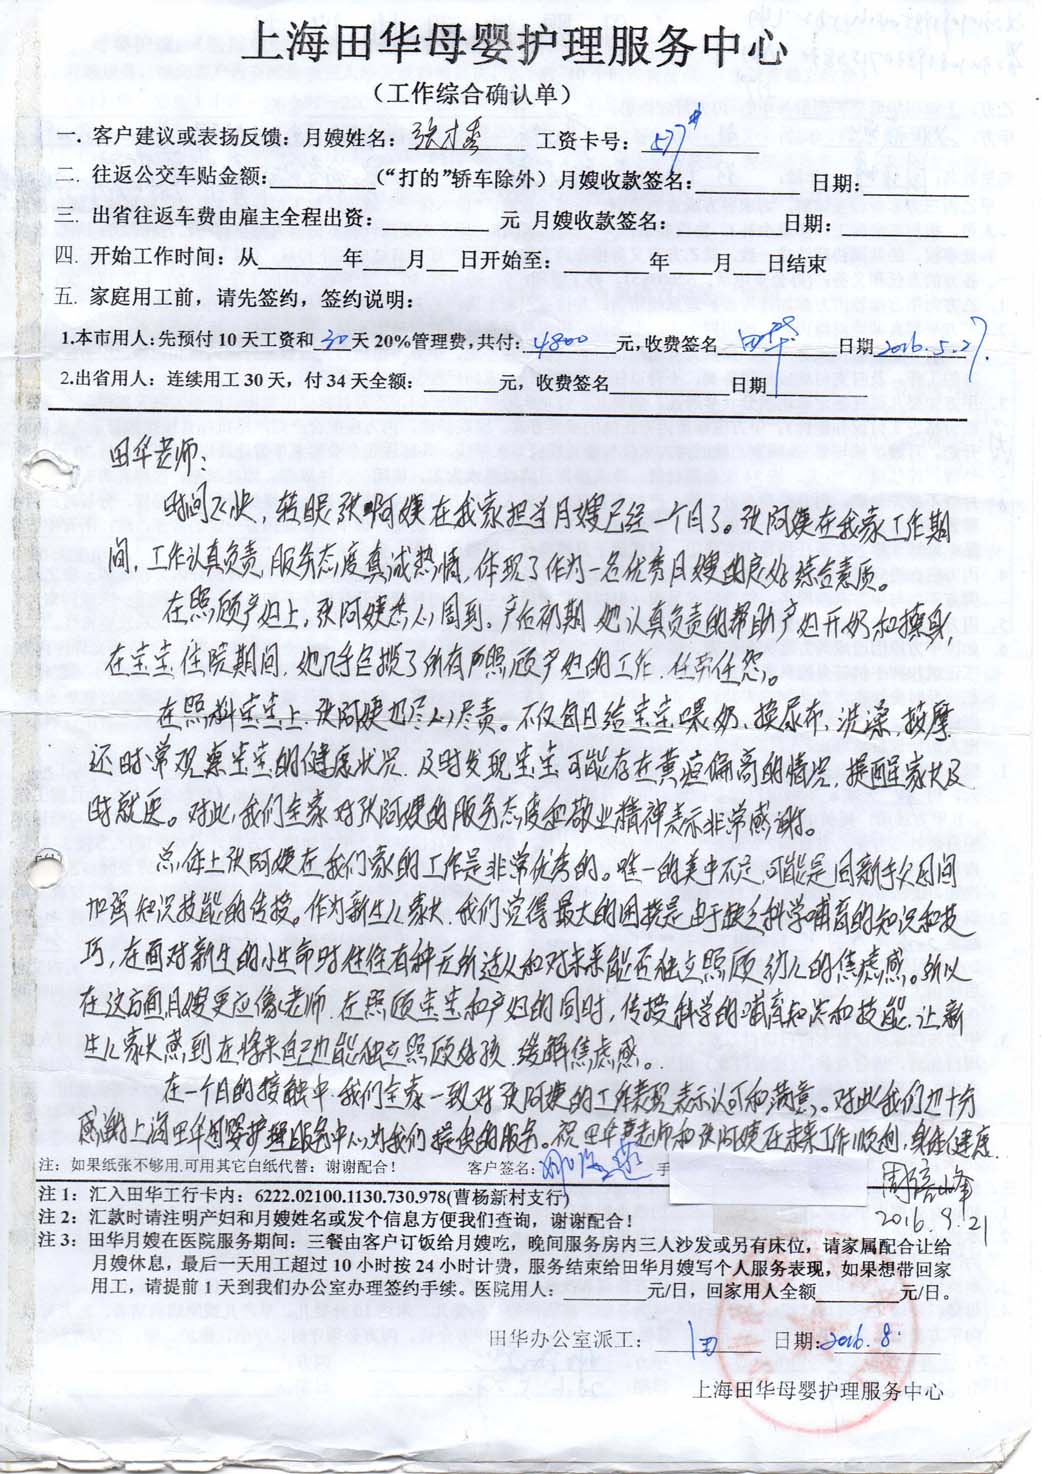 上海田华母婴护理服务中心
（工作综合确认单）
一．客户建议或表扬反馈：月嫂姓名：张才秀 工资卡号：577#
二．往返公交车贴金额：（“打的”轿车除外）月嫂收款签名： 日期：
三．出省往返车费由雇主全程出资： 元 月嫂收款签名： 日期：
四．开始工作时间：从 年 月 日开始至： 年 月 日结束
五．家庭用工前，请先签约，签约说明：
1.本市用人：先预付10天工资和30天20%管理费，共付：4800元，收费签名 田华 日期 2016.5.27.
2.出省用人：连续用工30天，付34天全额： 元，收费签名 日期
田华老师：
时间飞快，转眼张阿姨在我家担当月嫂已经一个月了。张阿姨在我家工作期
间，工作认真负责，服务态度真诚热情，体现了作为一名优秀月嫂的良好综合素质
在照顾产妇上，张阿姨悉心周到。产后初期，她认真负责的帮助产妇开奶和擦身，
在宝宝住院期间，她几乎包揽了所有照顾产妇的工作，任劳任怨。
在照料宝宝上，张阿姨也尽心尽责。不仅每日给宝宝喂奶、换尿布、洗澡、按摩
还时常观察宝宝的健康状况，及时发现宝宝可能存在黄疸偏高的情况，提醒家长及
时就医。对此，我们全家对张阿姨的服务态度和敬业精神表示非常感谢。
总体上张阿姨在我们家的工作是非常优秀的。唯一的美中不足，可能是同新手父母间
加强知识技能的传授。作为新生儿家长，我们觉得最大的困扰是由于缺乏科学哺育的知识和技
巧，在面对新生的小生命时往往有种无所适从和对未来能否独立照顾幼儿的焦虑感。所以
在这方面，月嫂更应像老师，在照顾宝宝和产妇的同时，传授科学的哺育知识和技能，让新
生儿家长感到在将来自己也能独立照顾好孩，缓解焦虑感。
在一个月的接触中，我们全家一致对张阿姨的工作表现表示认可和满意。对此我们也十分
感谢上海田华母婴护理服务中心为我们提供的服务。祝田华老师和张阿姨在未来工作顺利，身体健康
注：如果纸张不够用,可用其它白纸代替：谢谢配合！ 客户签名： 手
2016.9.21
注1：汇入田华工行卡内：6222.02100.1130.730.978(曹杨新村支行)
注2：汇款时请注明产妇和月嫂姓名或发个信息方便我们查询，谢谢配合！
注3：田华月嫂在医院服务期间：三餐由客户订饭给月嫂吃，晚间服务房内三人沙发或另有床位，请家属配合让给
月嫂休息，最后一天用工超过10小时按24小时计费，服务结束给田华月嫂写个人服务表现，如果想带回家
用工，请提前1天到我们办公室办理签约手续。医院用人： 元/日，回家用人全额 元/日。
田华办公室派工： 田 日期：2016.8.
上海田华母婴护理服务中心